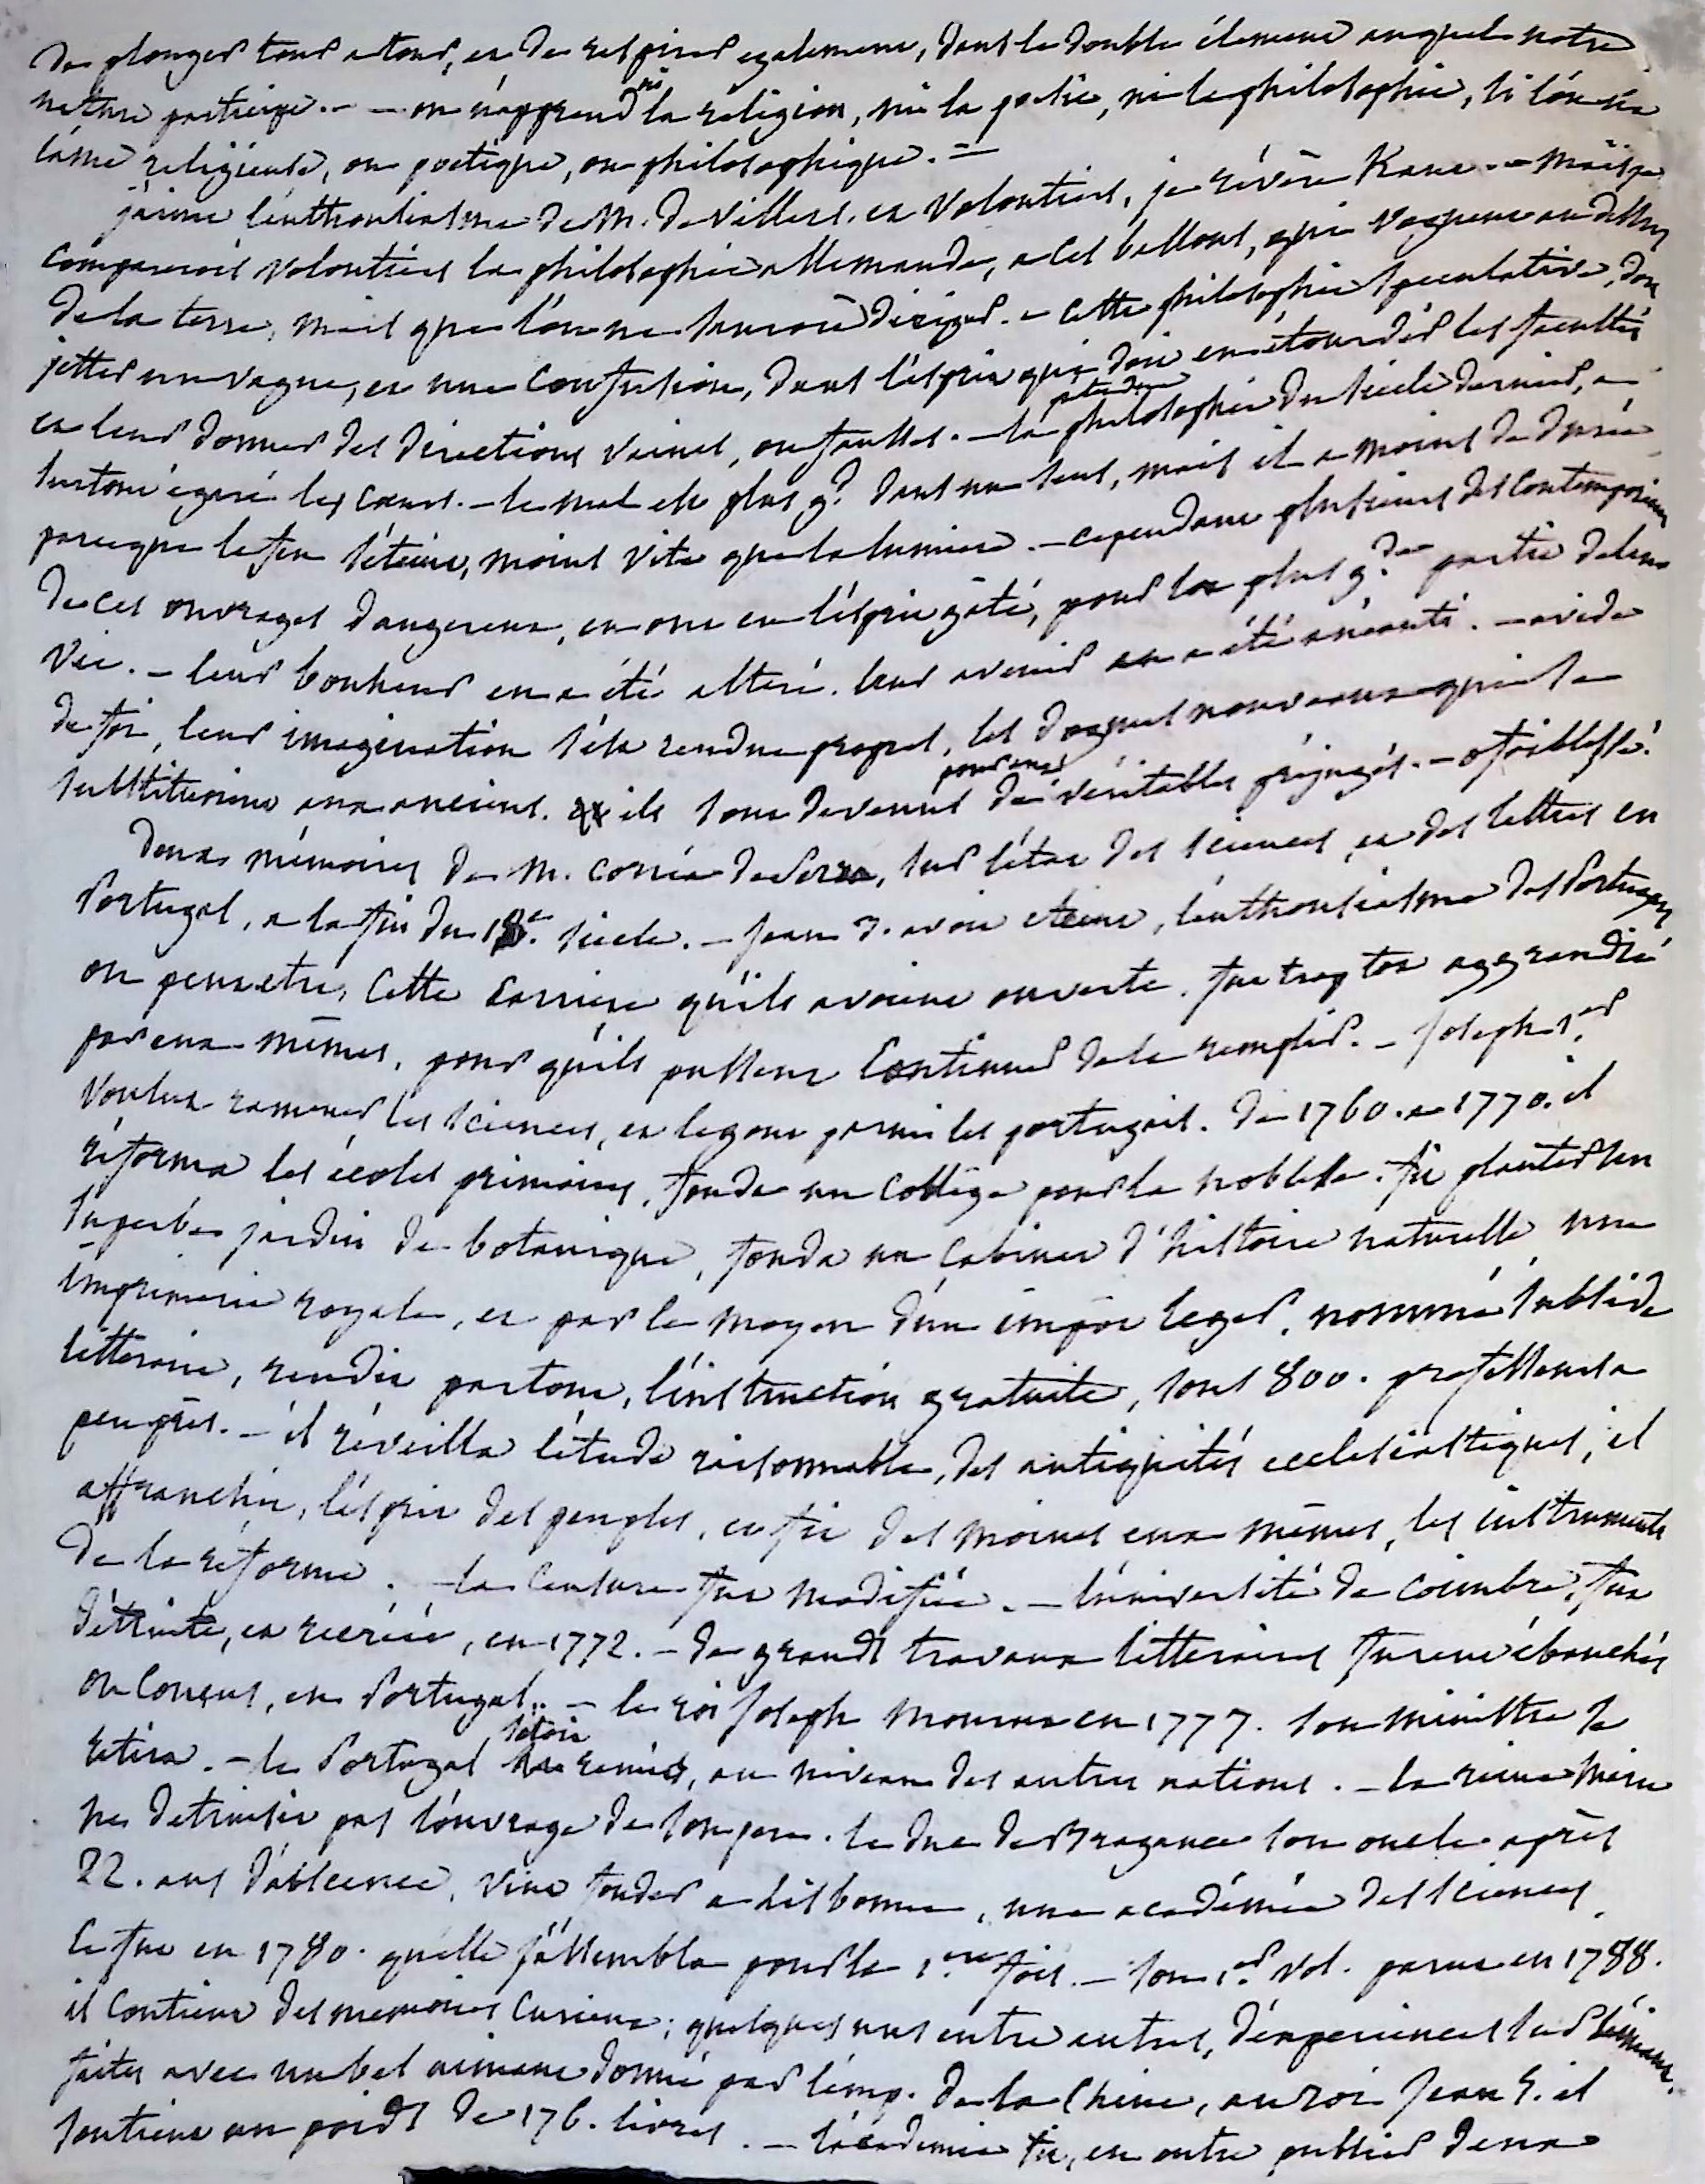 de plonger tour a tour, et de respirer egalement, dans le double élement auquel notre
nature participe. — on n'apprend ni la religion, ni la poesie, ni la philosophie, si l'on n'a
l'ame religieuse, ou poetique, ou philosophique. =
j'aime l'enthousiasme de M. de Villers. et volontiers, je révère Kant. — mais je
comparerois volontiers la philosophie allemande, a ces ballons, qui voguent au dessus
de la terre, mais que l'on ne sauroit diriger. — cette philosophie speculative, doit
jetter un vague, et une confusion, dans l'esprit qui doit en étourdir les facultés
et leur donner des directions vaines, ou fausses. — la philosophie du siecle dernier, a
surtout égaré les cœurs. — le mal est plus gd. dans un sens, mais il a moins de durée
parceque le feu s'éteint, moins vite que la lumiere. — cependant plusieurs des contemporains
de ces ouvrages dangereux, en ont eu l'esprit gâté, pour la plus gde. partie de leur
vie. — leur bonheur en a été altéré. leur avenir en a été anéanti. — avide
de foi, leur imagination s'est rendue propres, les dogmes nouveaux qui se
substituoient aux anciens. ils sont devenus pour eux de véritables préjugés. — o foiblesse!
Deux mémoires de M. Corréa de Serra, sur l'état des sciences, et des lettres en
Portugal, a la fin du 18e. siecle. — Jean 3. avoit éteint, l'enthousiasme des Portugais
ou peutetre, cette carriere qu'ils avoient ouverte. fut trop tot aggrandie
par eux-mêmes, pour qu'ils pussent continuer de la remplir. — Joseph 1er
voulut ramener les sciences, et le gout parmi les portugais. de 1760. a 1770. il
réforma les écoles primaires, fonda un college pour la noblesse. fit planter un
superbe jardin de botanique, fonda un cabinet d'histoire naturelle, une
imprimerie royale, et par le moyen d'un impôt leger, nommé subside
litteraire, rendit partout, l'instruction gratuite, sous 800. professeurs a
peu près. — il réveilla l'étude raisonnable, des antiquités ecclesiastiques, il
affranchit, l'esprit des peuples, et fit des moines eux mêmes, les instruments
de la réforme. — la censure fut modifiée. — l'université de Coimbre, fut
détruite, et recréée, en 1772. — de grands travaux litteraires furent ébauchés
ou conçus, en Portugal. — le roi Joseph mourut en 1777. son ministre se
retira. — le Portugal s'étoit remis, au niveau des autres nations. — la reine Marie
ne detruisit pas l'ouvrage de son pere. le duc de Bragance son oncle après
22. ans d'absence, vint fonder a Lisbonne, une académie des sciences.
Ce fut en 1780. qu'elle s'assembla pour la 1ere fois. — son 1er vol. parut en 1788.
il contient des memoires curieux; quelques uns entre autres, d'experiences sur l'aimant.
faites avec un bel aimant donné par l'emp. de la Chine, au roi Jean 5. il
soutient un poids de 176. livres. — l'académie fit, en outre publier deux